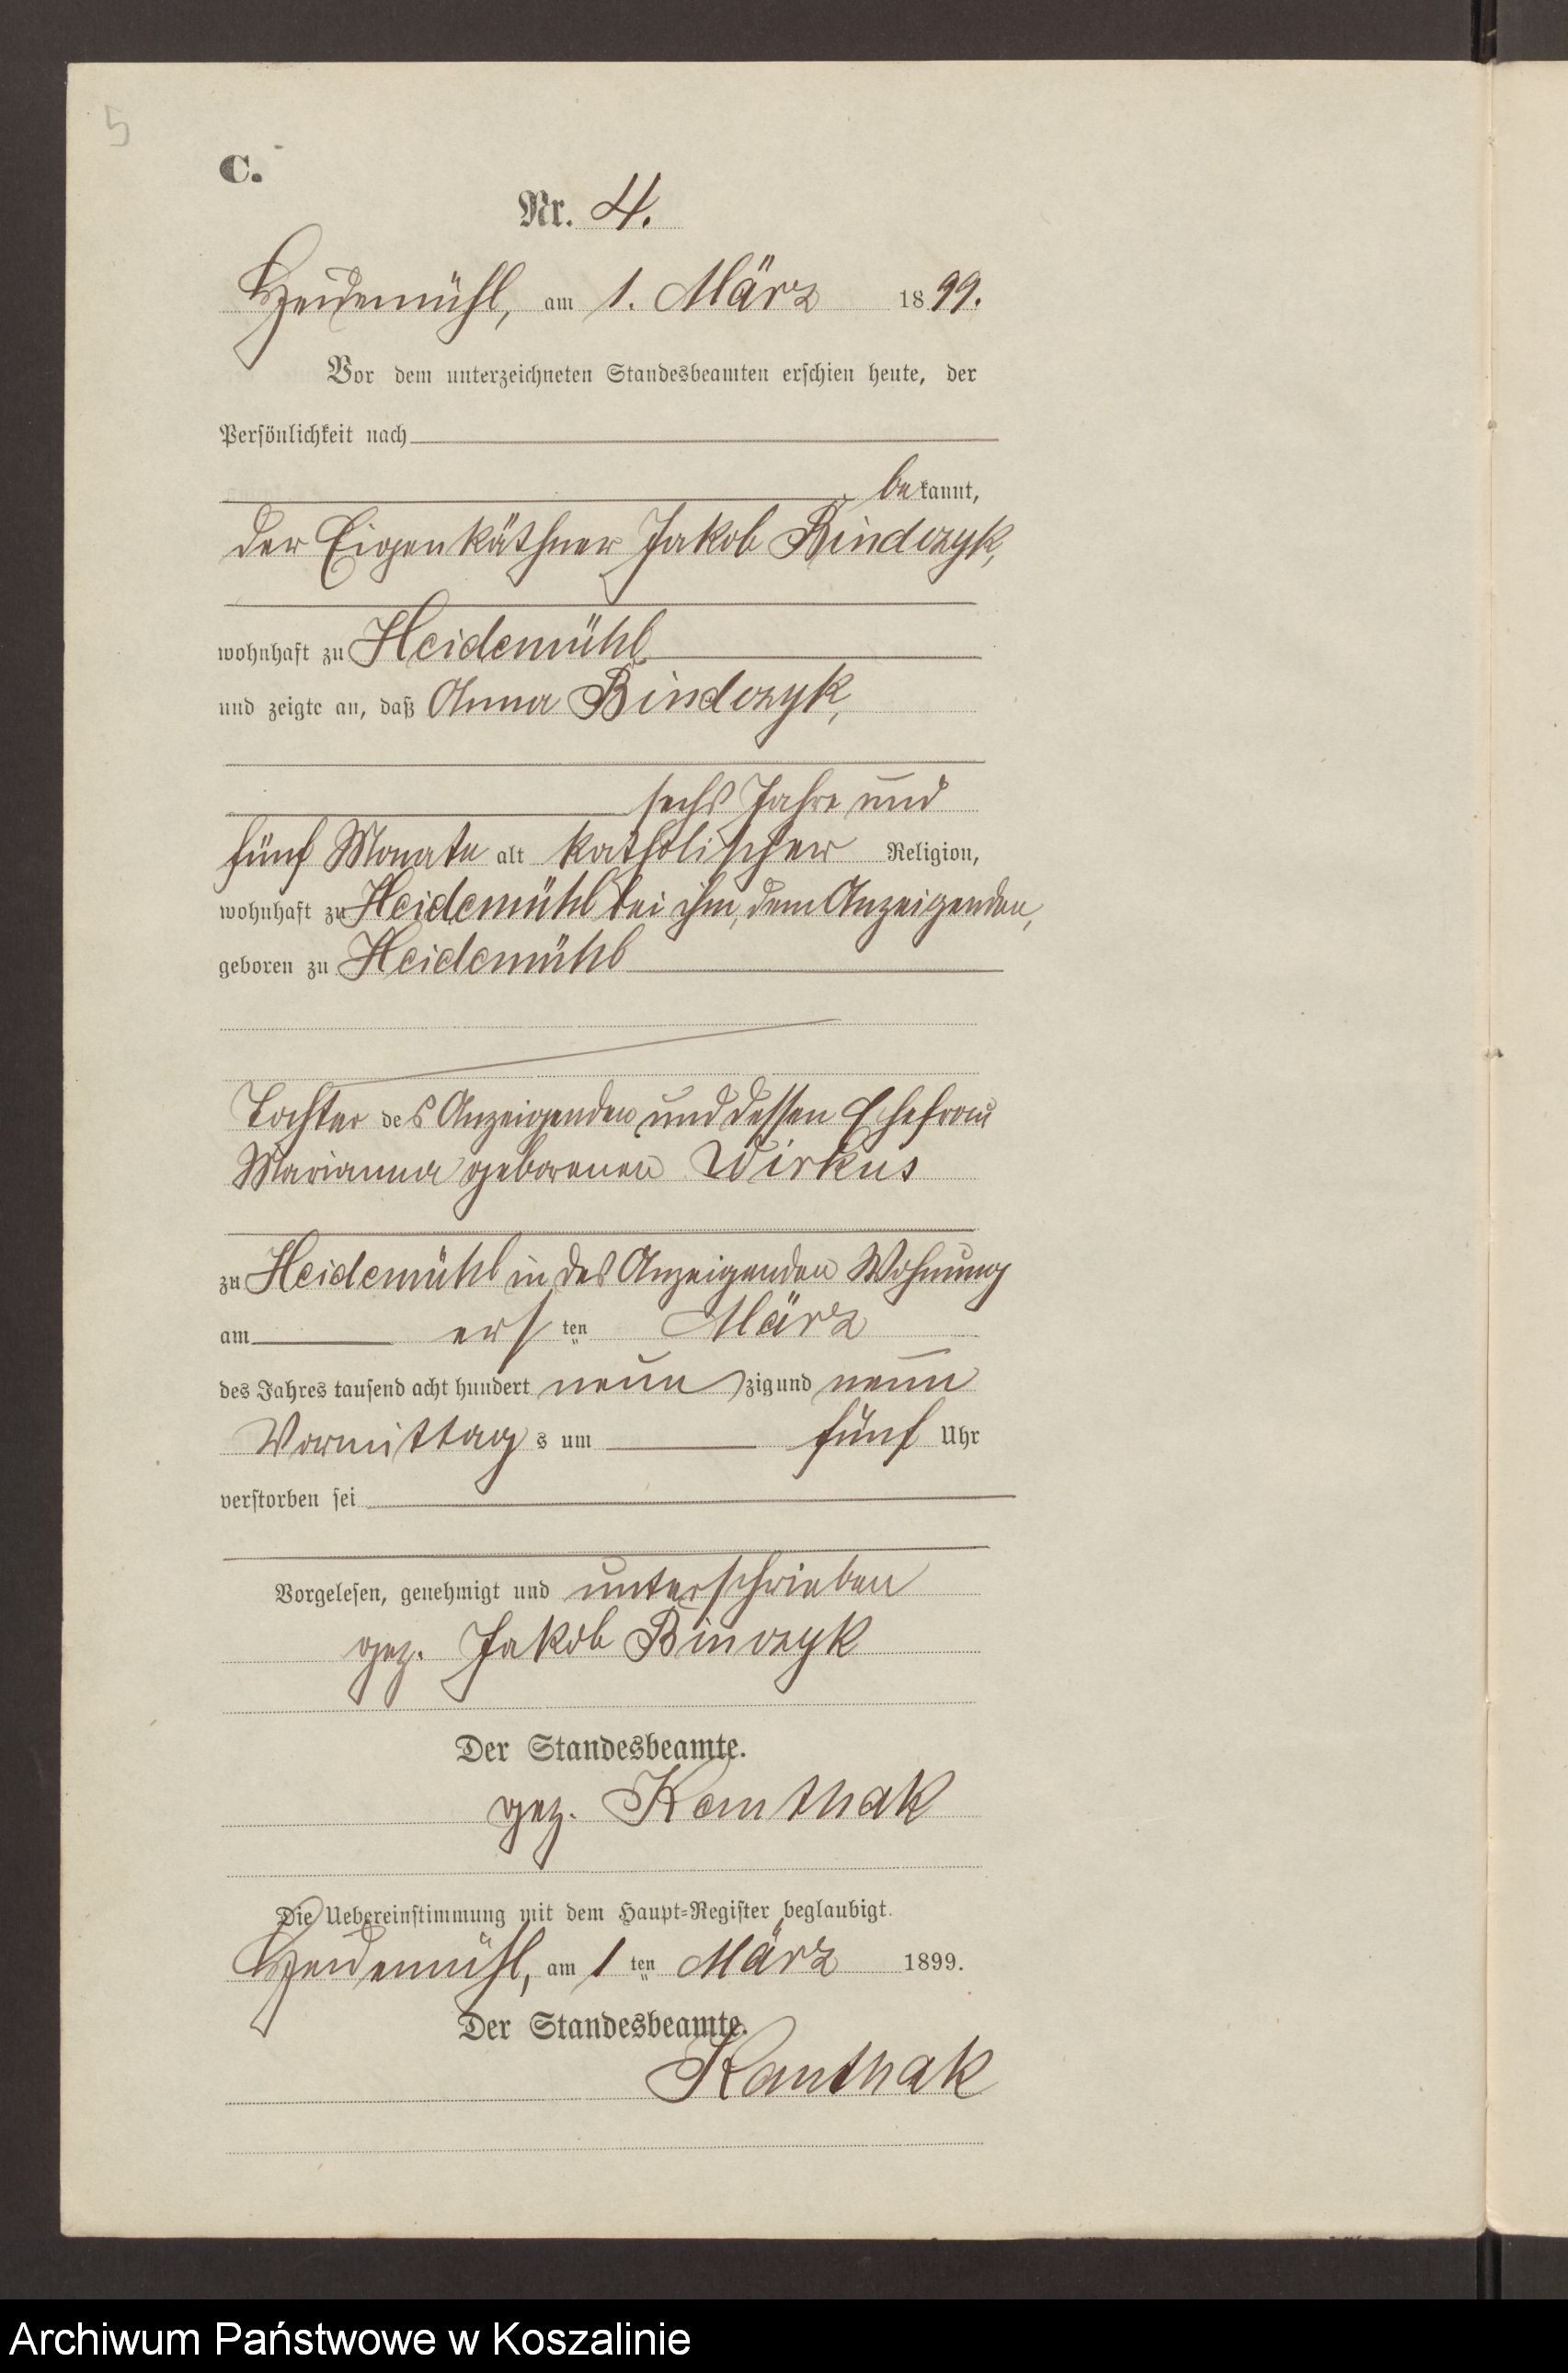 5
C.
Nr. 4.
Heidemühl, am 1. März 1899.
Vor dem unterzeichneten Standesbeamten erschien heute, der
Persönlichkeit nach
bekannt,
der Eigenkäthner Jakob Bindczyk,
wohnhaft zu Heidemühl
und zeigte an, daß Anna Bindczyk,
sechs Jahre und
fünf Monate alt katholischer Religion,
wohnhaft zu Heidemühl bei ihm, dem Anzeigenden,
geboren zu Heidemühl
Tochter des Anzeigenden und dessen Ehefrau
Marianna geborenen Wirkus
zu Heidemühl in des Anzeigenden Wohnung
am ersten März
des Jahres tausend acht hundert neunzig und neun
Vormittags um fünf Uhr
verstorben sei
Vorgelesen, genehmigt und unterschrieben
gez. Jakob Binczyk
Der Standesbeamte.
gez. Kanthak
Die Uebereinstimmung mit dem Haupt-Register beglaubigt.
Heidemühl, am 1ten März 1899.
Der Standesbeamte.
Kanthak
Archiwum Państwowe w Koszalinie